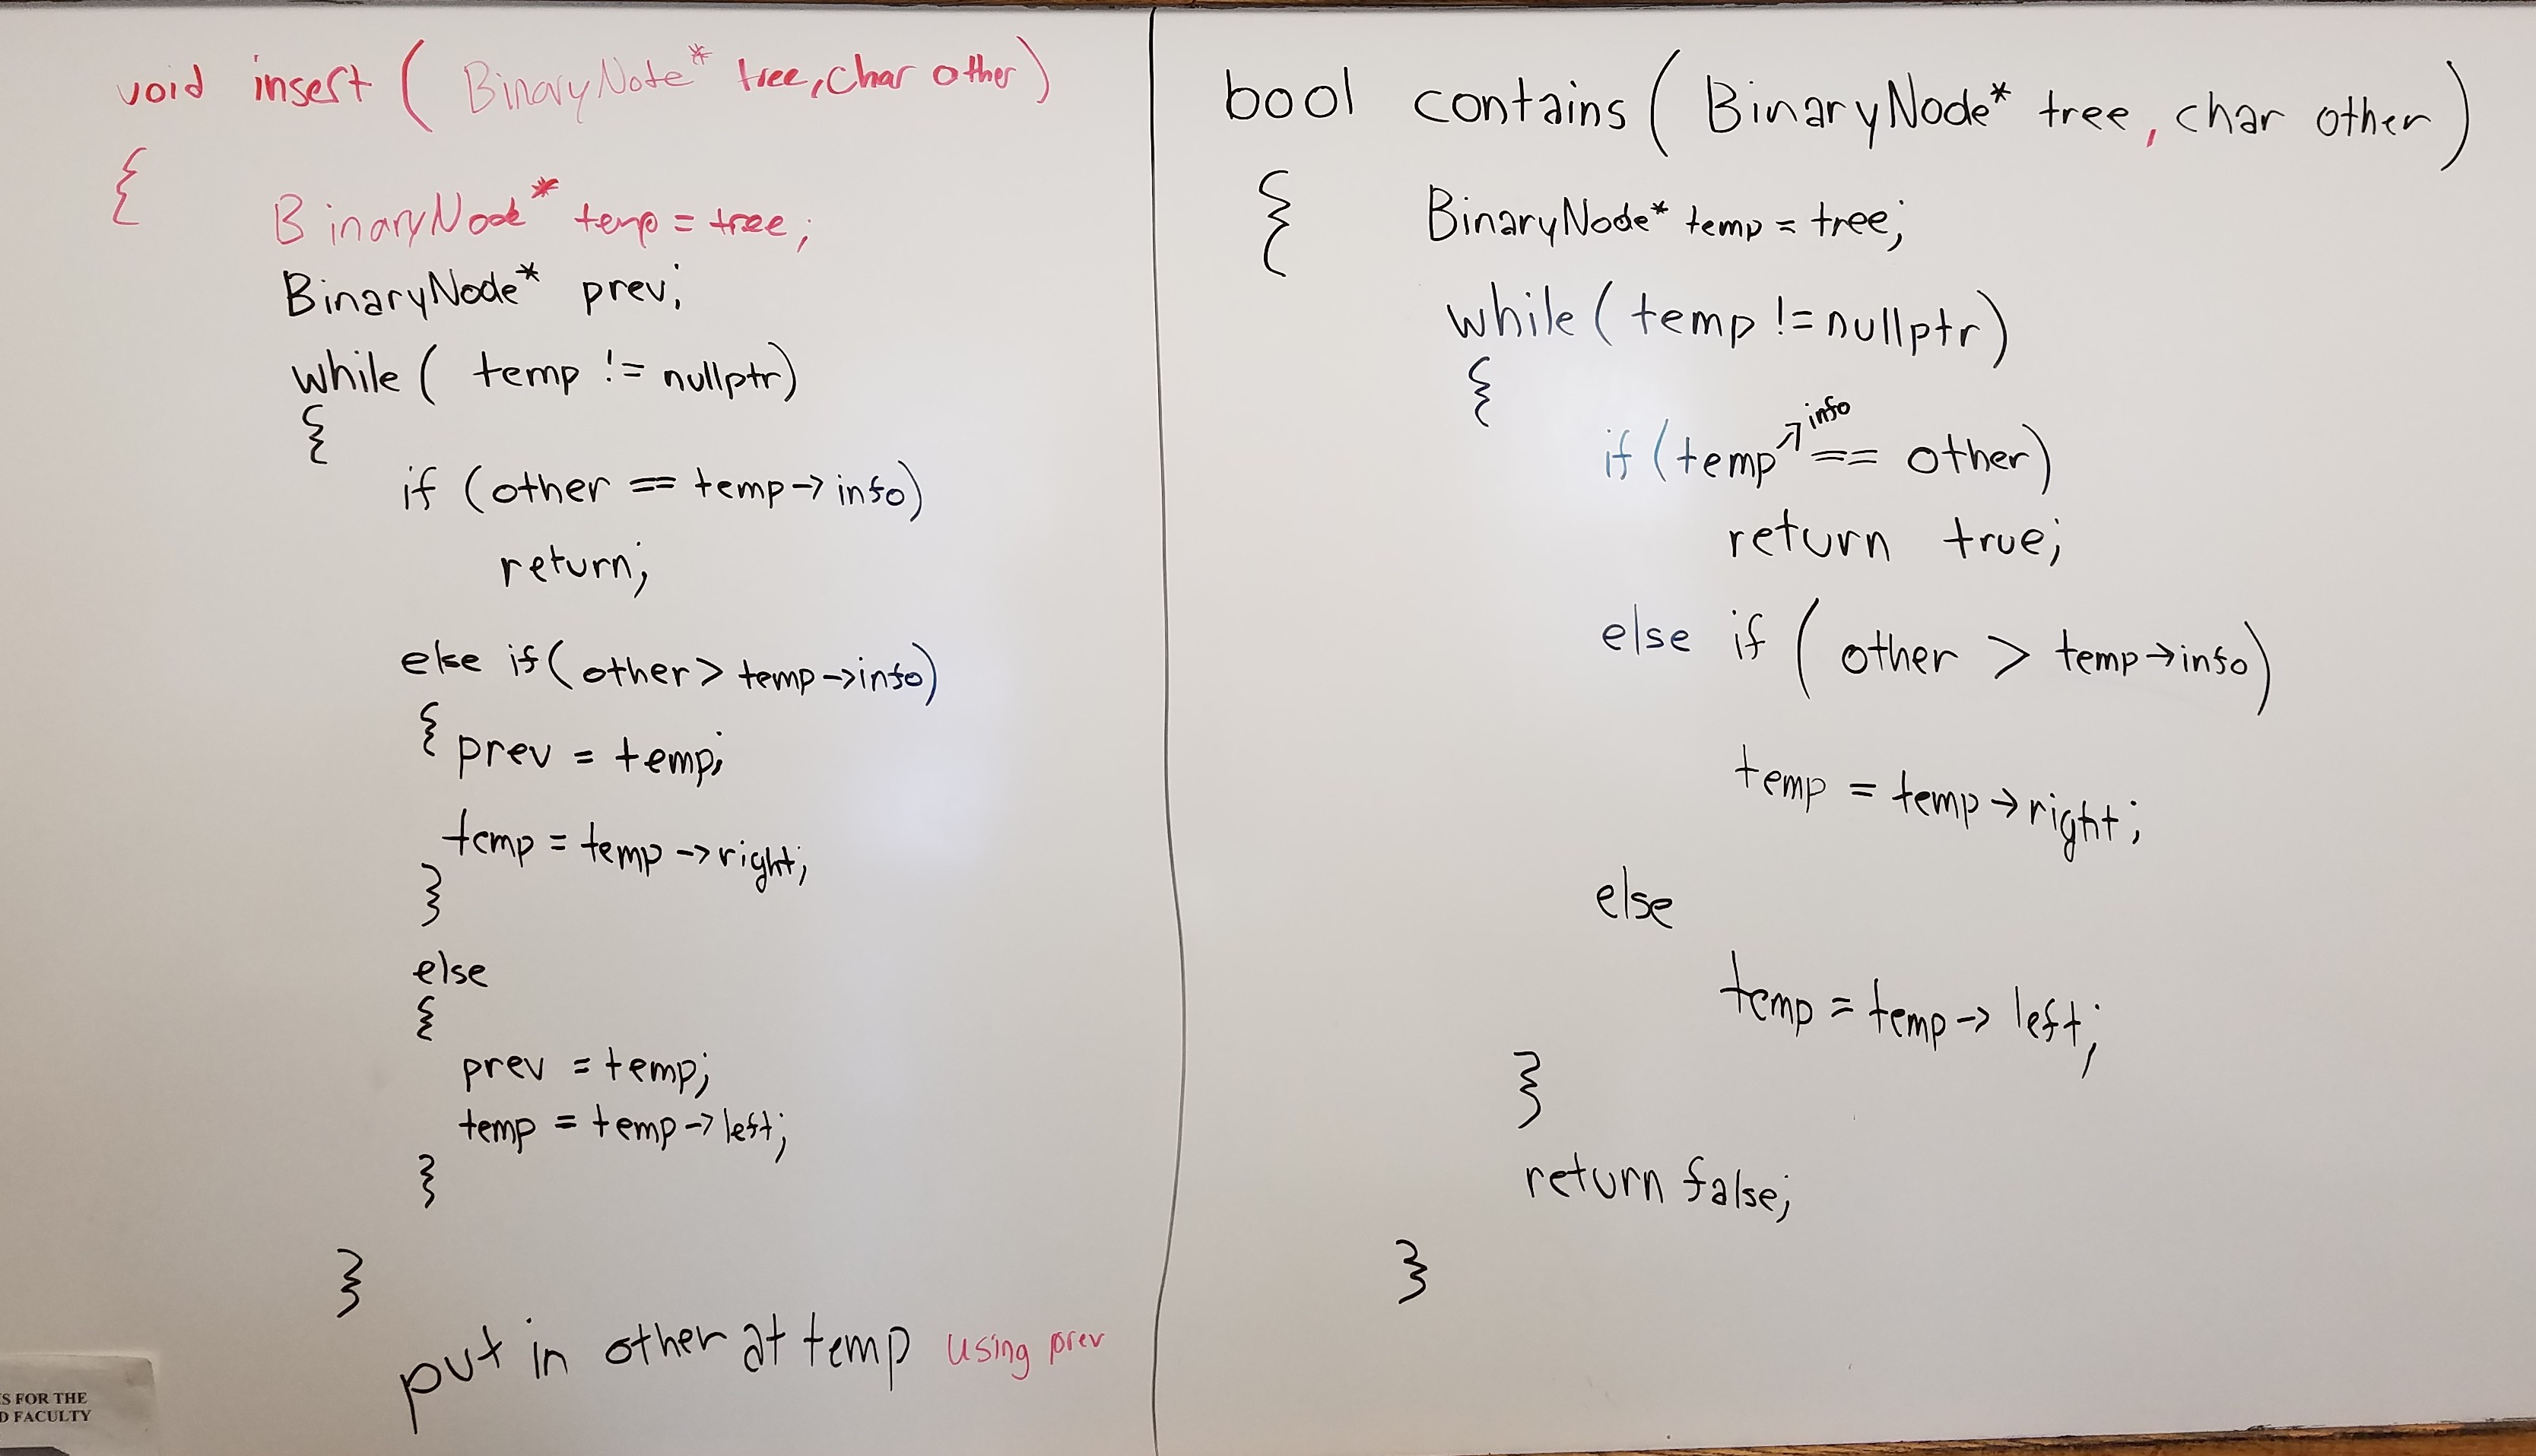 void insert ( BinaryNote* tree, char other )
{
BinaryNode* temp = tree;
BinaryNode* prev;
while ( temp != nullptr)
{
if (other == temp->info)
return;
else if( other > temp->info)
{ prev = temp;
temp = temp->right;
}
else
{
prev = temp;
temp = temp->left;
}
}
put in other at temp using prev
S FOR THE
D FACULTY
bool contains ( BinaryNode* tree, char other )
{
BinaryNode* temp = tree;
while ( temp != nullptr )
{
if (temp->info == other)
return true;
else if ( other > temp->info)
temp = temp->right;
else
temp = temp-> left;
}
return false;
}